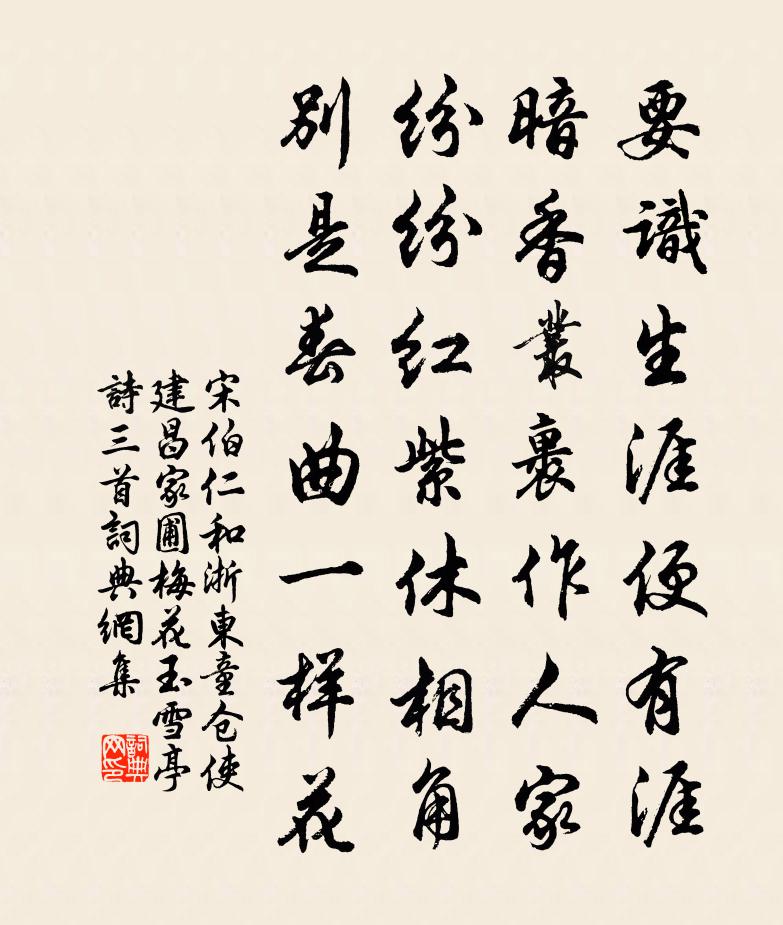 要識生涯便有涯
暗香叢裏作人家
紛紛紅紫休相角
別是春曲一样花
宋伯仁和浙東童仓使
建昌家圃梅花玉雪亭
詩三首詞典網集
詞典网印